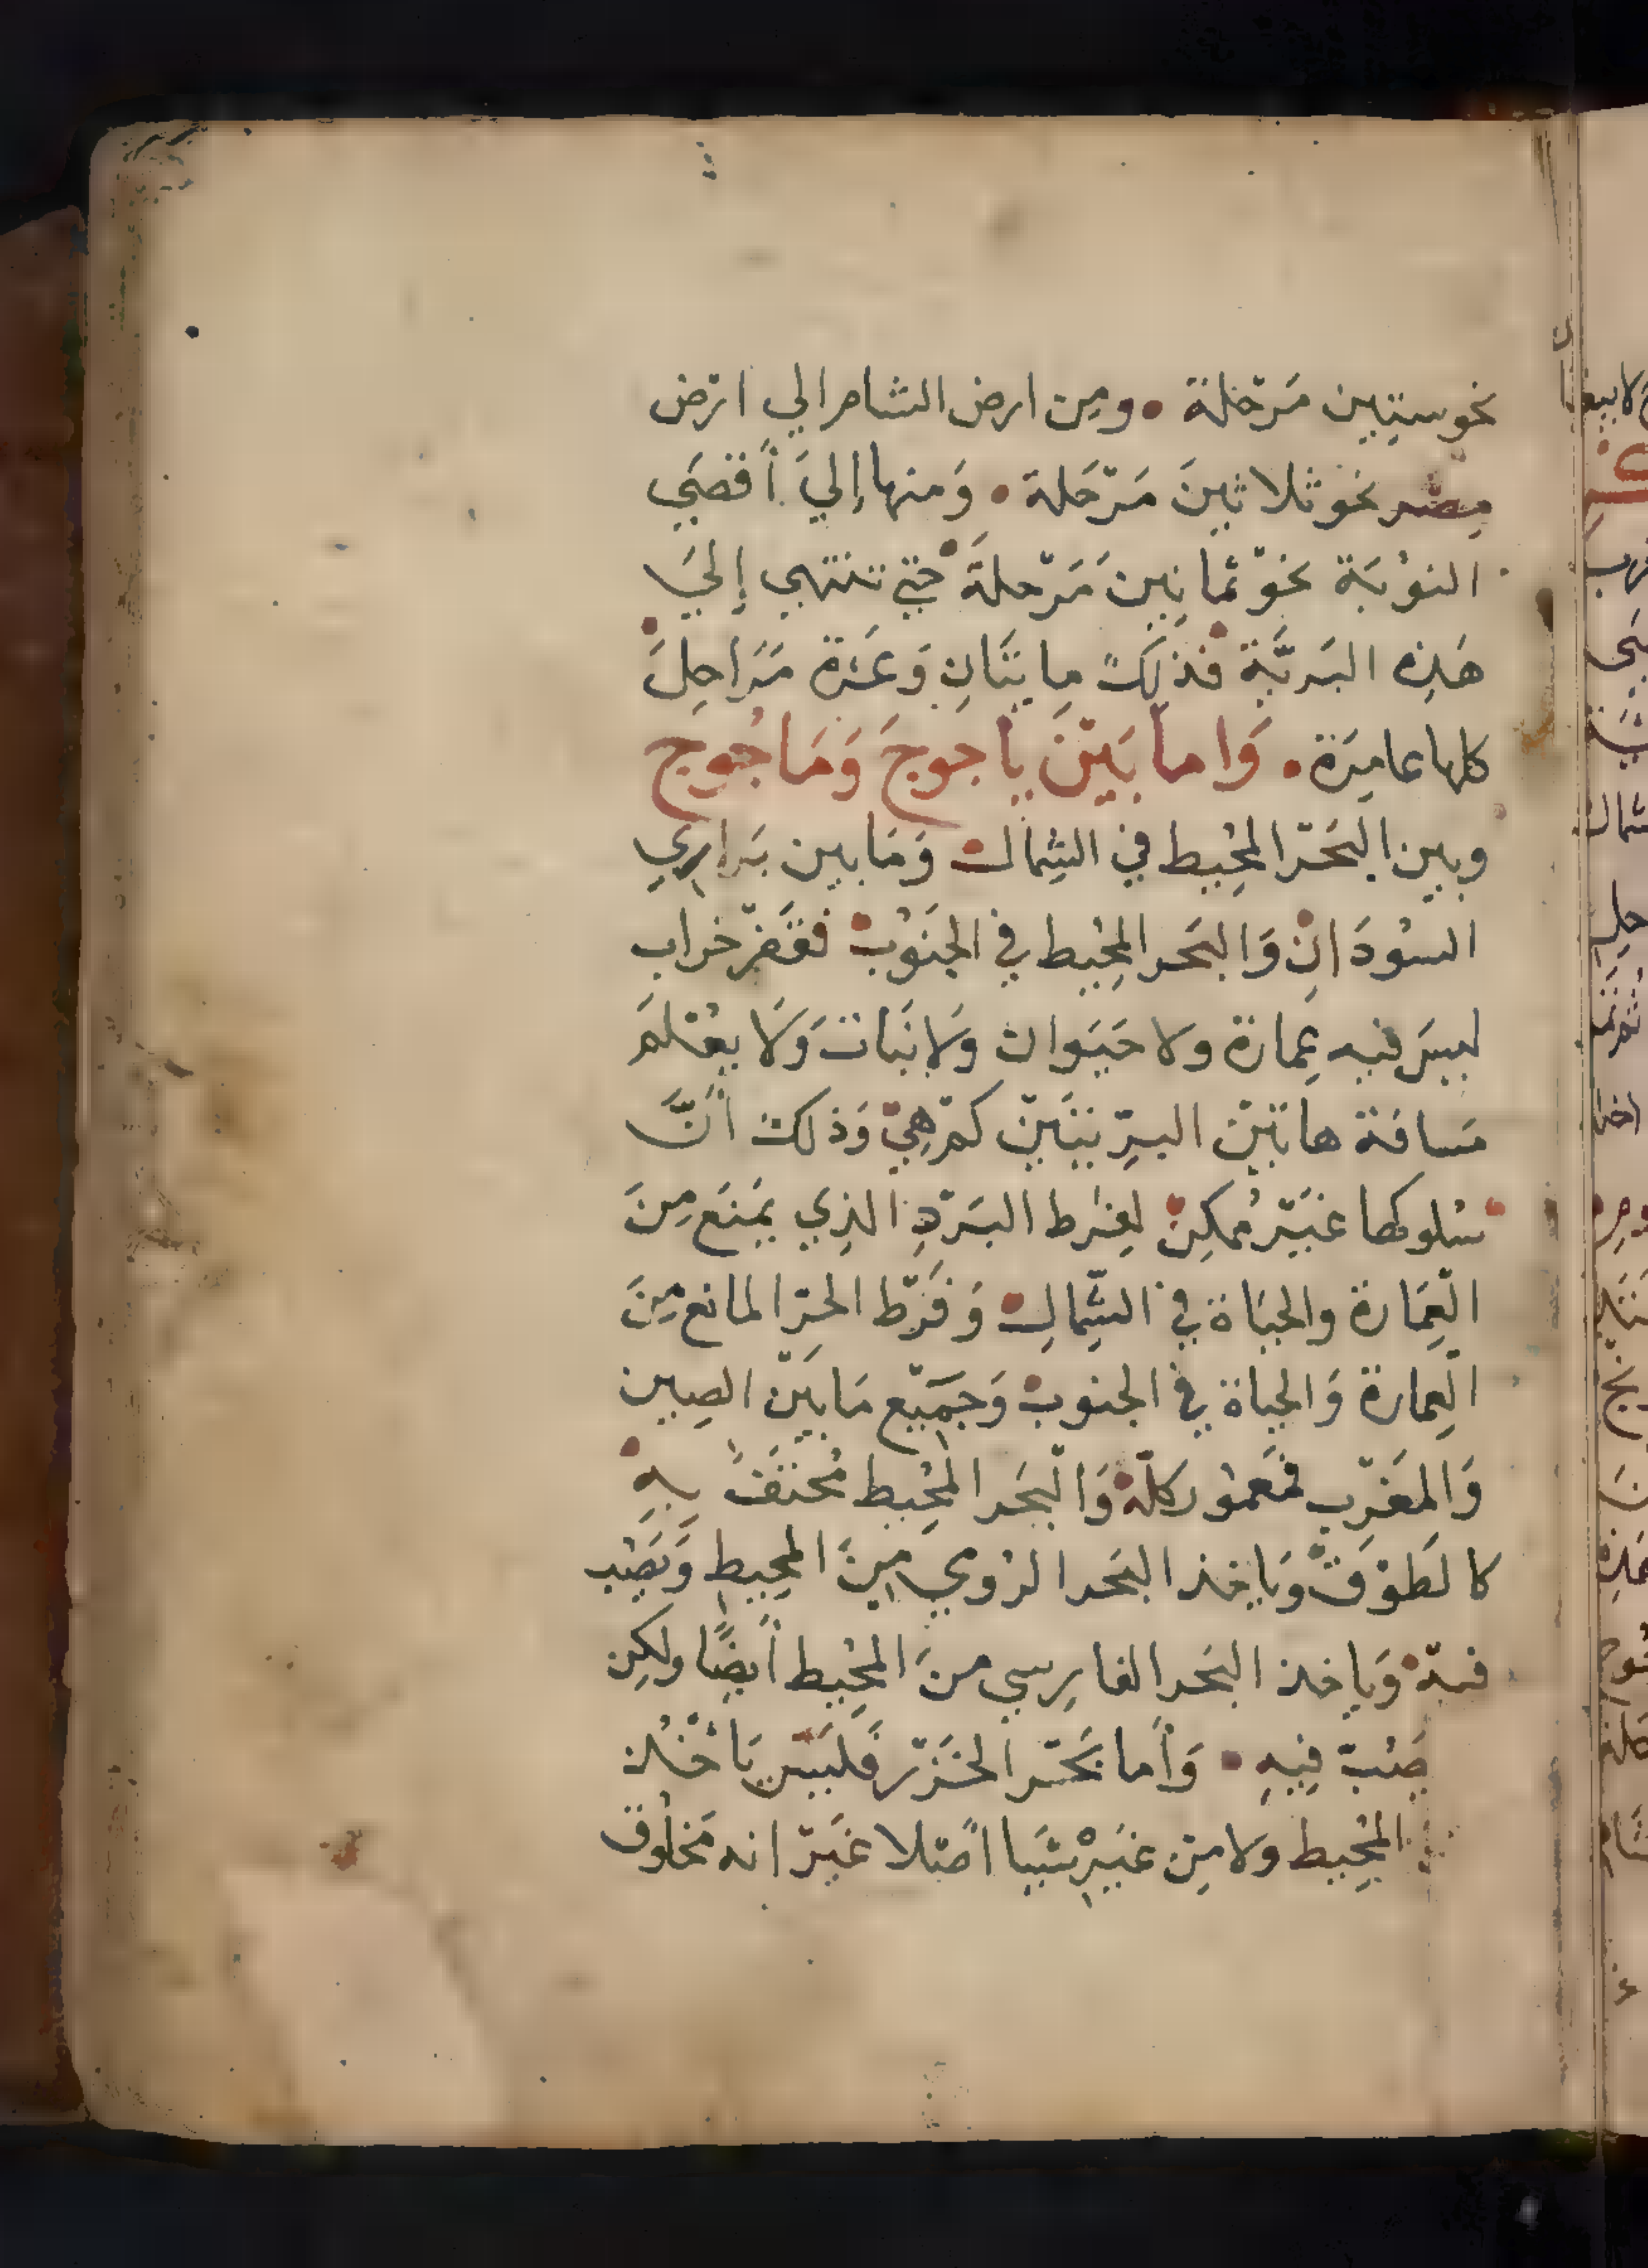 نحو ستين مرحلة ومن ارض الشام الي ارض
مصر نحو ثلاثين مرحلة وَمنها إليَ أقصَي
النوبَة نحو ثمانين مَرحلةَ حتي تنتهي إليَ
هَذِه البَريَّة فذلِكَ مايتَانِ وَعَشرة مَرَاحِلَ
كلها عامِرَة وَاما بَينَ ياجوجَ وَمَاجُوج
وبين البَحر المحِيط في الشِمال وَمَا بين بَراري
السُودَانِ وَالبَحر المحِيط في الجنَوُب فقَفر خراب
ليسَ فيه عِمارة ولا حَيَوان وَلا نبَات وَلَا يعْلم
مَسافة هاتَين البريتَين كم هِيَ وَذلك أنَّ
سُلوكها غَير مُمكِن لِفرط البَردِ الذِي يمنَع مِنَ
العِمَارة والحيَاة في الشِّمالِ وَفَرط الحر المانع مِنَ
العِمارة وَالحياة في الجنوب وَجَميَع مَا بَين الصِين
وَالمغَرب فمَعمُور كلهُ وَالبَحر المحِيط مُحتَفُ بِهِ
كالطَوقَ وَياخذ البَحر الرُومي مِنَ المحِيطِ وَيَصُب
فيهْ وَياخذ البَحر الفارِسي منَ المحِيط أيضًا ولكِن
يَصُبّ فِيهِ وَأما بَحر الخَزر فَليَس يَاخُذ
المحِيط ولا مِن غيَرِ شيَيا اصَلا غيَر انه مَخلوق